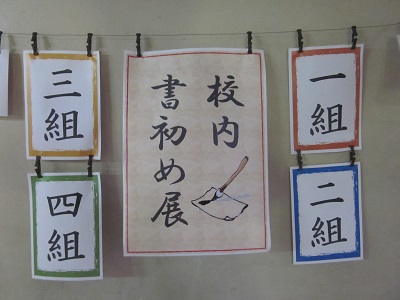 校内
書初め展
一組
二組
三組
四組